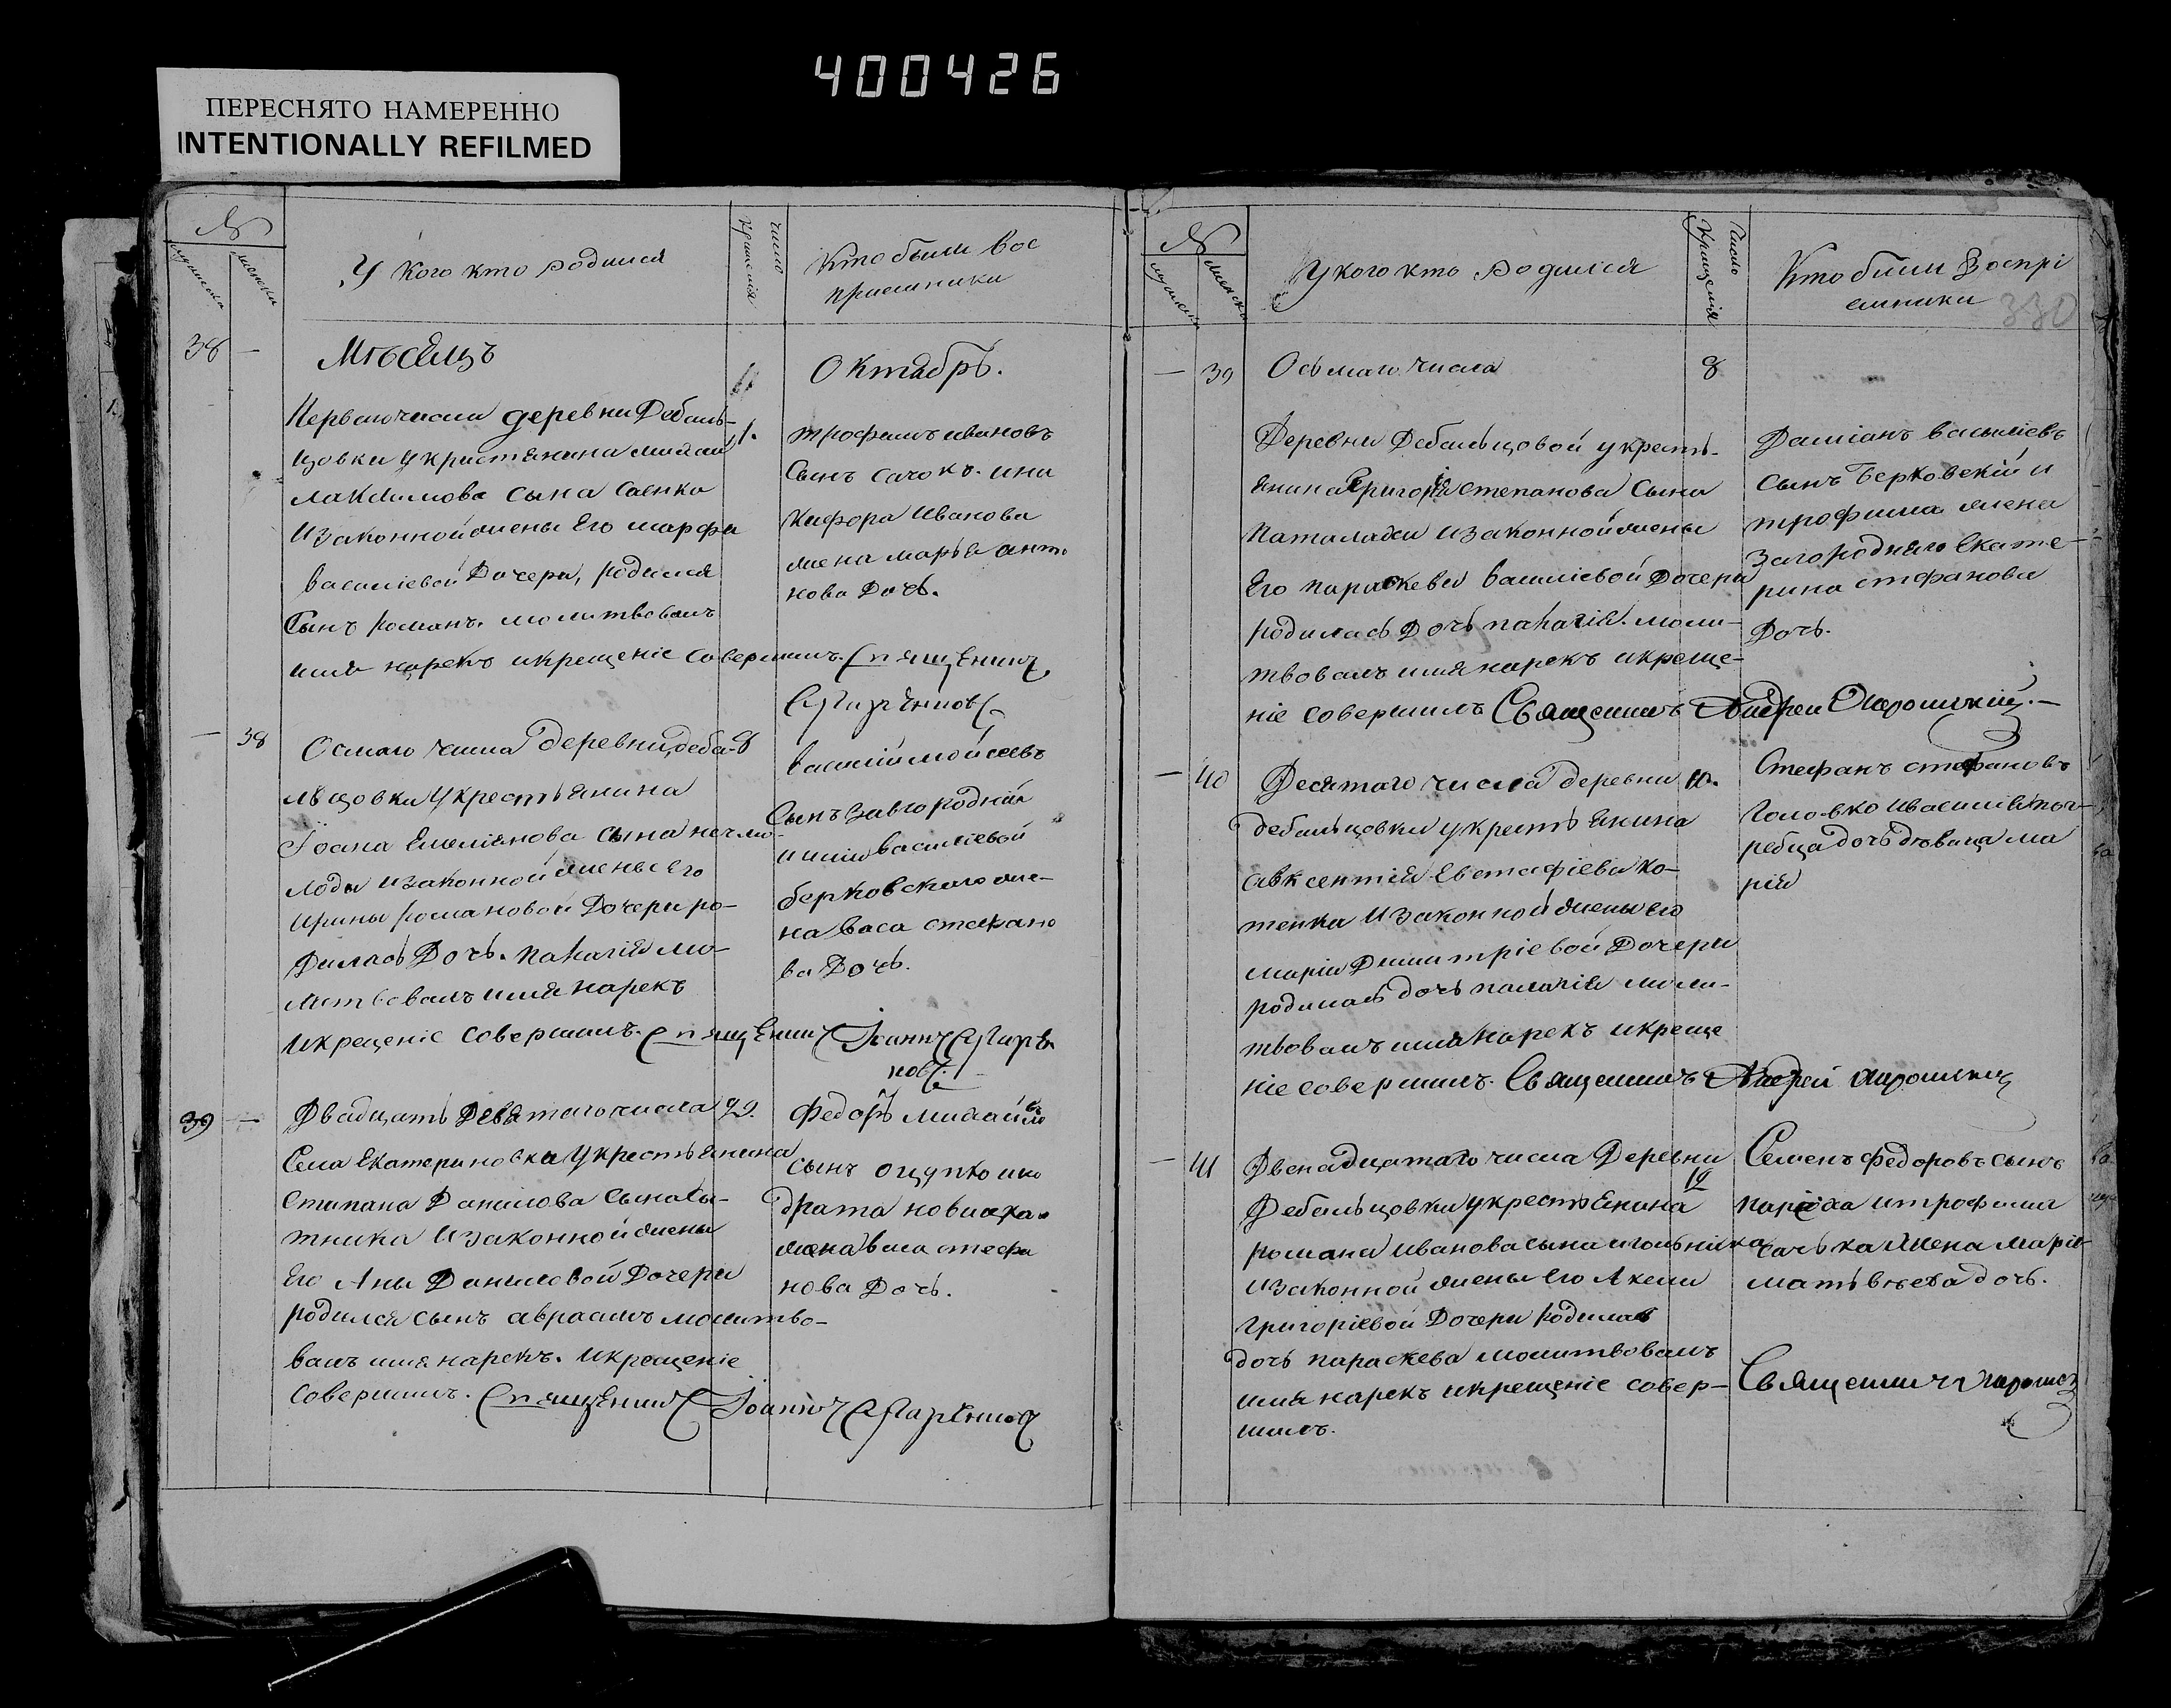 400426
ПЕРЕСНЯТО НАМЕРЕННО
INTENTIONALLY REFILMED
№
У кого кто родился
число крещенія
Кто были вос
приемники
38 — Мѣсяцъ
Октябрь.
Первого числа деревни Дебаль-
1.
цовки у кристянина
сына Саенко
изаконной жены Его марфы
василіевой Дочери, родился
Сынъ романъ. молитвовалъ
имя нарекъ икрещеніе совершилъ. Священникъ
трофимъ ивановъ
Сынъ сачокъ. ини
кифора Иванова
жена марья анто
нова Дочь.
— 38 Осмаго числа деревни деба- 8
льцовки укрестьянина
Іоана Емеліянова сына
лоды изаконной жены Его
Ирины романовой Дочери ро-
дилась Дочь. пакагія мо-
литвовалъ имя нарекъ
икрещеніе совершилъ. Священникъ Іоаннъ
василій мойсеевъ
Сынъ Завгородній
василіевой
берковскаго же-
на васа стефано
ва Дочь.
39 — Двадцать девятаго числа 29.
Села Екатериновка укрестьянина
Стипана Данилова Сына Сы-
тника изаконной жены
Его Аны Даниловой Дочери
родился сынъ авраамъ молитво-
валъ имя нарекъ. икрещеніе
совершилъ. Священникъ Іоаннъ
федоръ михайловъ
сынъ
жена васа стефа
нова Дочь.
№
У кого кто родился
Число Крещенія
Кто были Воспрі
емники
330
— 39 Осьмаго числа 8
Деревни Дебальцовой укресть-
янина Григорія степанова Сына
изаконной жены
Его параскевы василіевой Дочери
родилась Дочь пакагія. моли-
твовалъ имя нарекъ икреще-
ніе совершилъ Священникъ Андрей
Даміанъ василіевъ
сынъ Берковскій и
трофима жена
Загородняго Екате-
рина стфанова
Дочь.
— 40 Десятаго числа деревни 10.
дебальцовки укрестьянина
авксентія Евстафіева ко-
тенка изаконной жены его
маріи Димитріевой Дочери
родилась дочь палагія моли-
твовалъ имя нарекъ икреще
ніе совершилъ. Священникъ Андрей
Стефанъ стефановъ
Головко ивасилія пог-
ребца дочь дѣвица ма
рія
— 41 Двенадцатаго числа Деревни
12
Дебальцовки укрестьянина
романа иванова сына игольника
изаконной жены его Акели
григоріевой Дочери родилась
дочь параскева молитвовалъ
имя нарекъ икрещеніе совер-
шилъ.
Семенъ федоровъ сынъ
итрофима
сачька жена марія
матвѣева дочь.
Священникъ